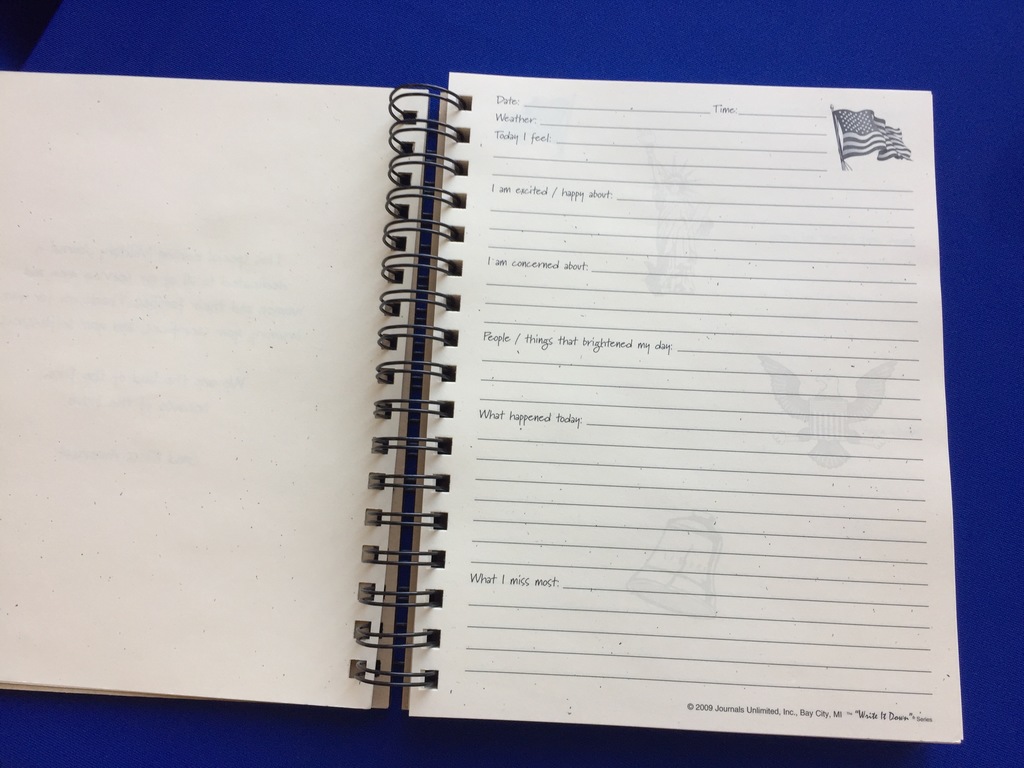 Date: Time:
Weather:
Today I feel:
I am excited / happy about:
I am concerned about:
People / things that brightened my day:
What happened today:
What I miss most:
© 2009 Journals Unlimited, Inc., Bay City, MI ™ "Write It Down"® Series